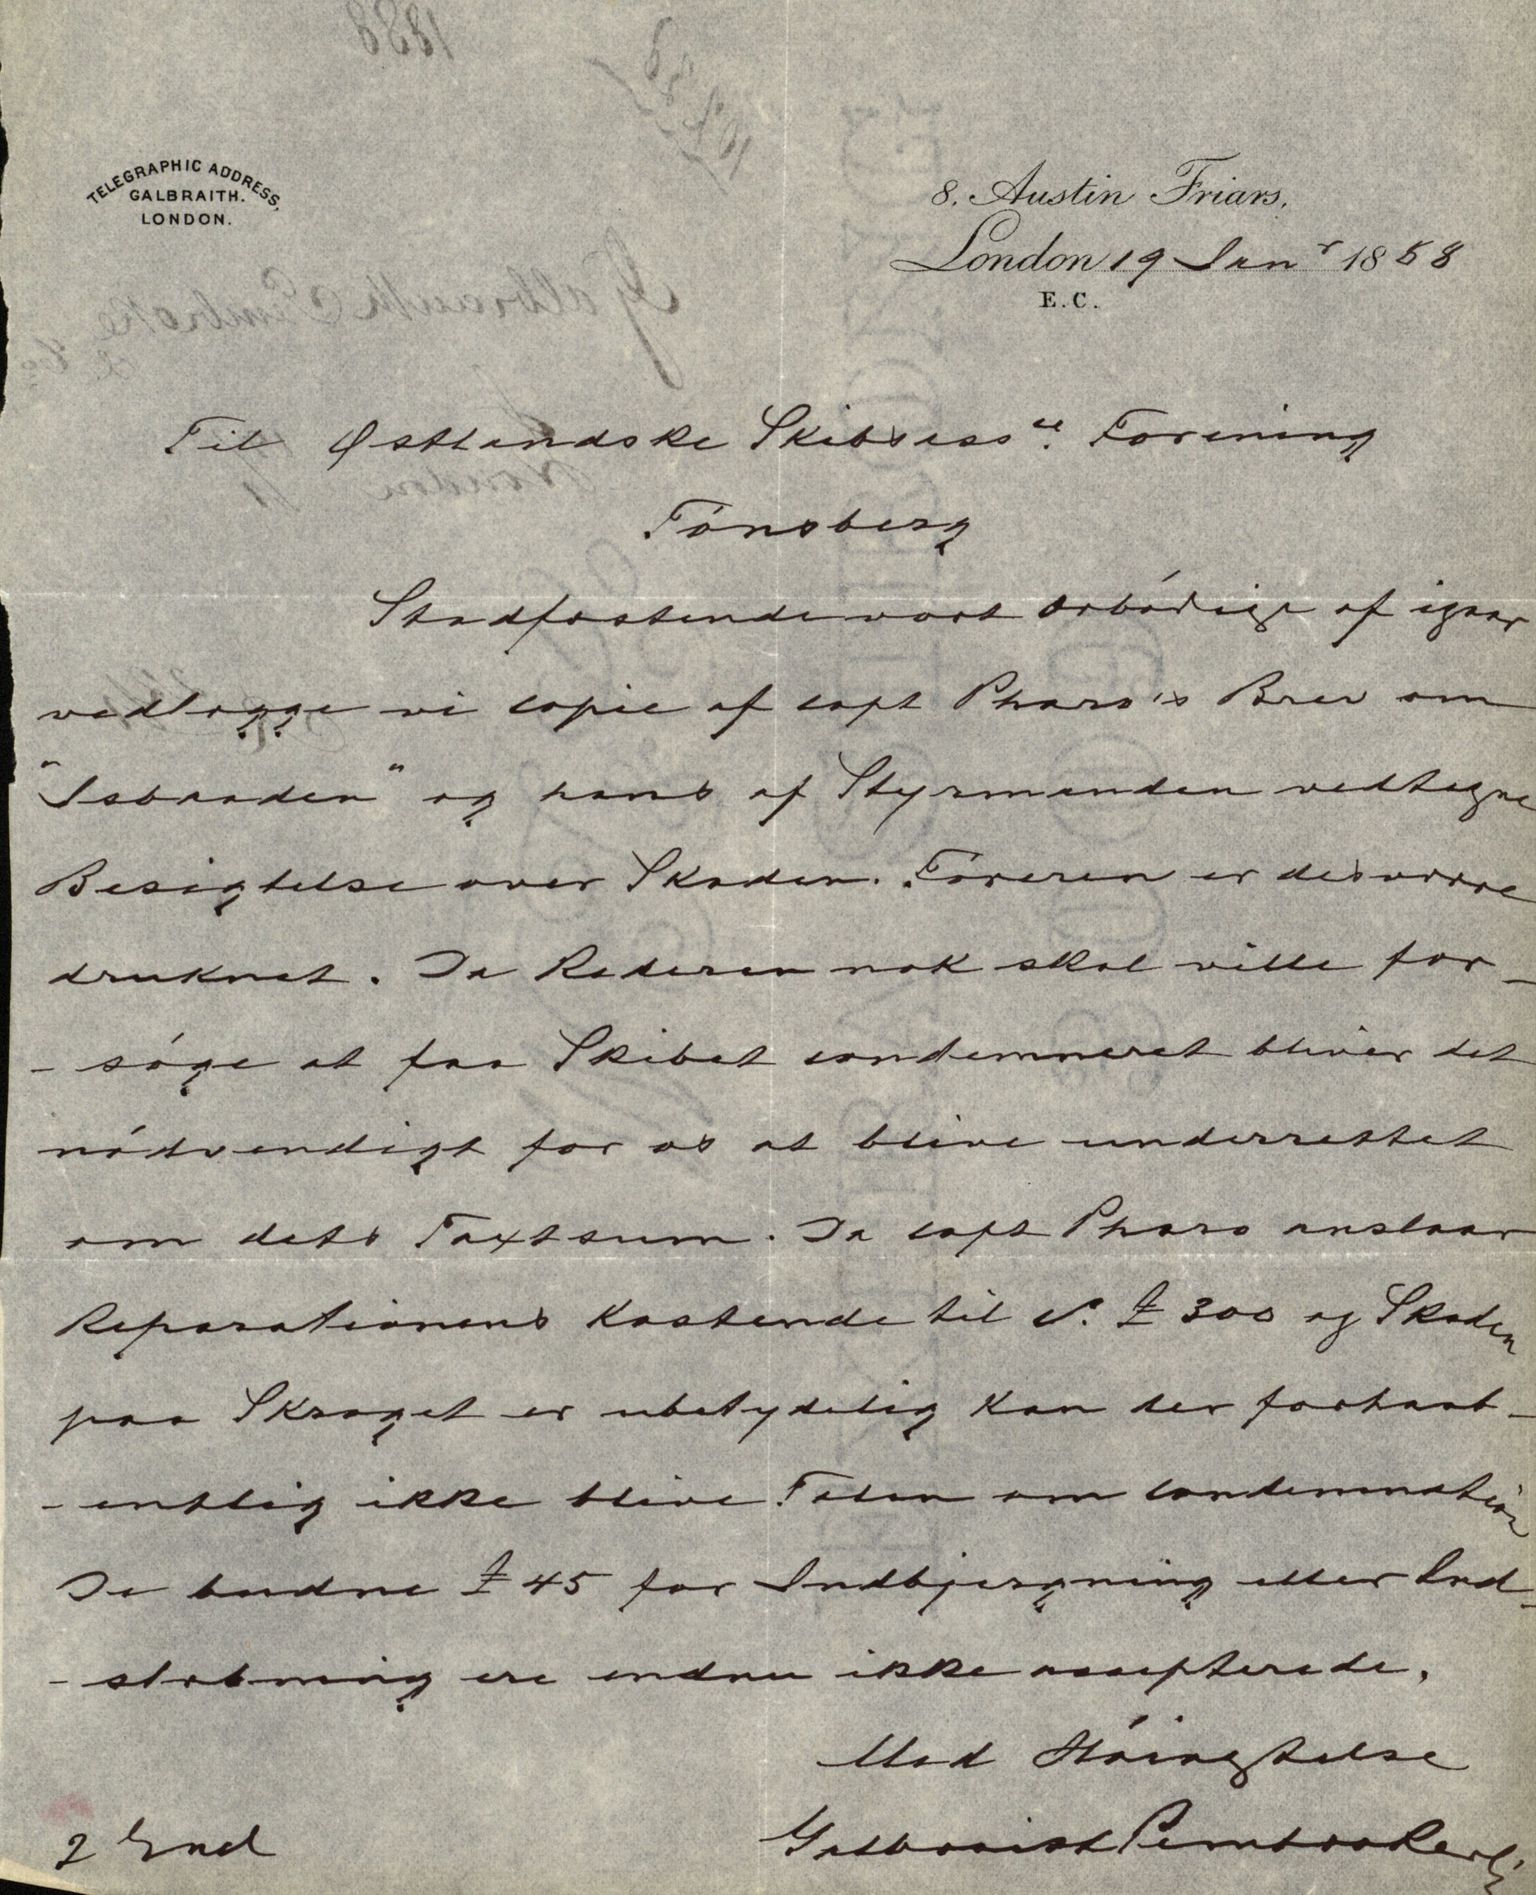 TELEGRAPHIC ADDRESS,
GALBRAITH.
LONDON.
8. Austin Friars,
London 19 Janr 1888
E.C.
Til Østlandske Skibsassce. Forening
Tönsberg
Stadfæstende vort ærbödige af igaar
vedlægge vi copie af capt Pharo's Brev om
"Isbaaden" og hans af Styrmanden vedtagne
Besigtelse over Skaden. Föreren er desværre
druknet. Da Rederen nok skal ville for-
-söge at faa Skibet condemneret bliver det
nödvendigt for os at blive underrettet
om dets Taxtsum. Da capt Pharo anslaar
Reparationens Kostende til £ 300 og Skaden
paa Skroget er ubetydelig kan der forhaab-
-entlig ikke blive Talen om condemnation
De budne £ 45 for Indbjergning eller Ind-
-slæbning ere endnu ikke accepterede.
Med Höiagtelse
Galbraith Pembroke & Co
2 Incl
1888
Galbraith Pembroke
& Co
London